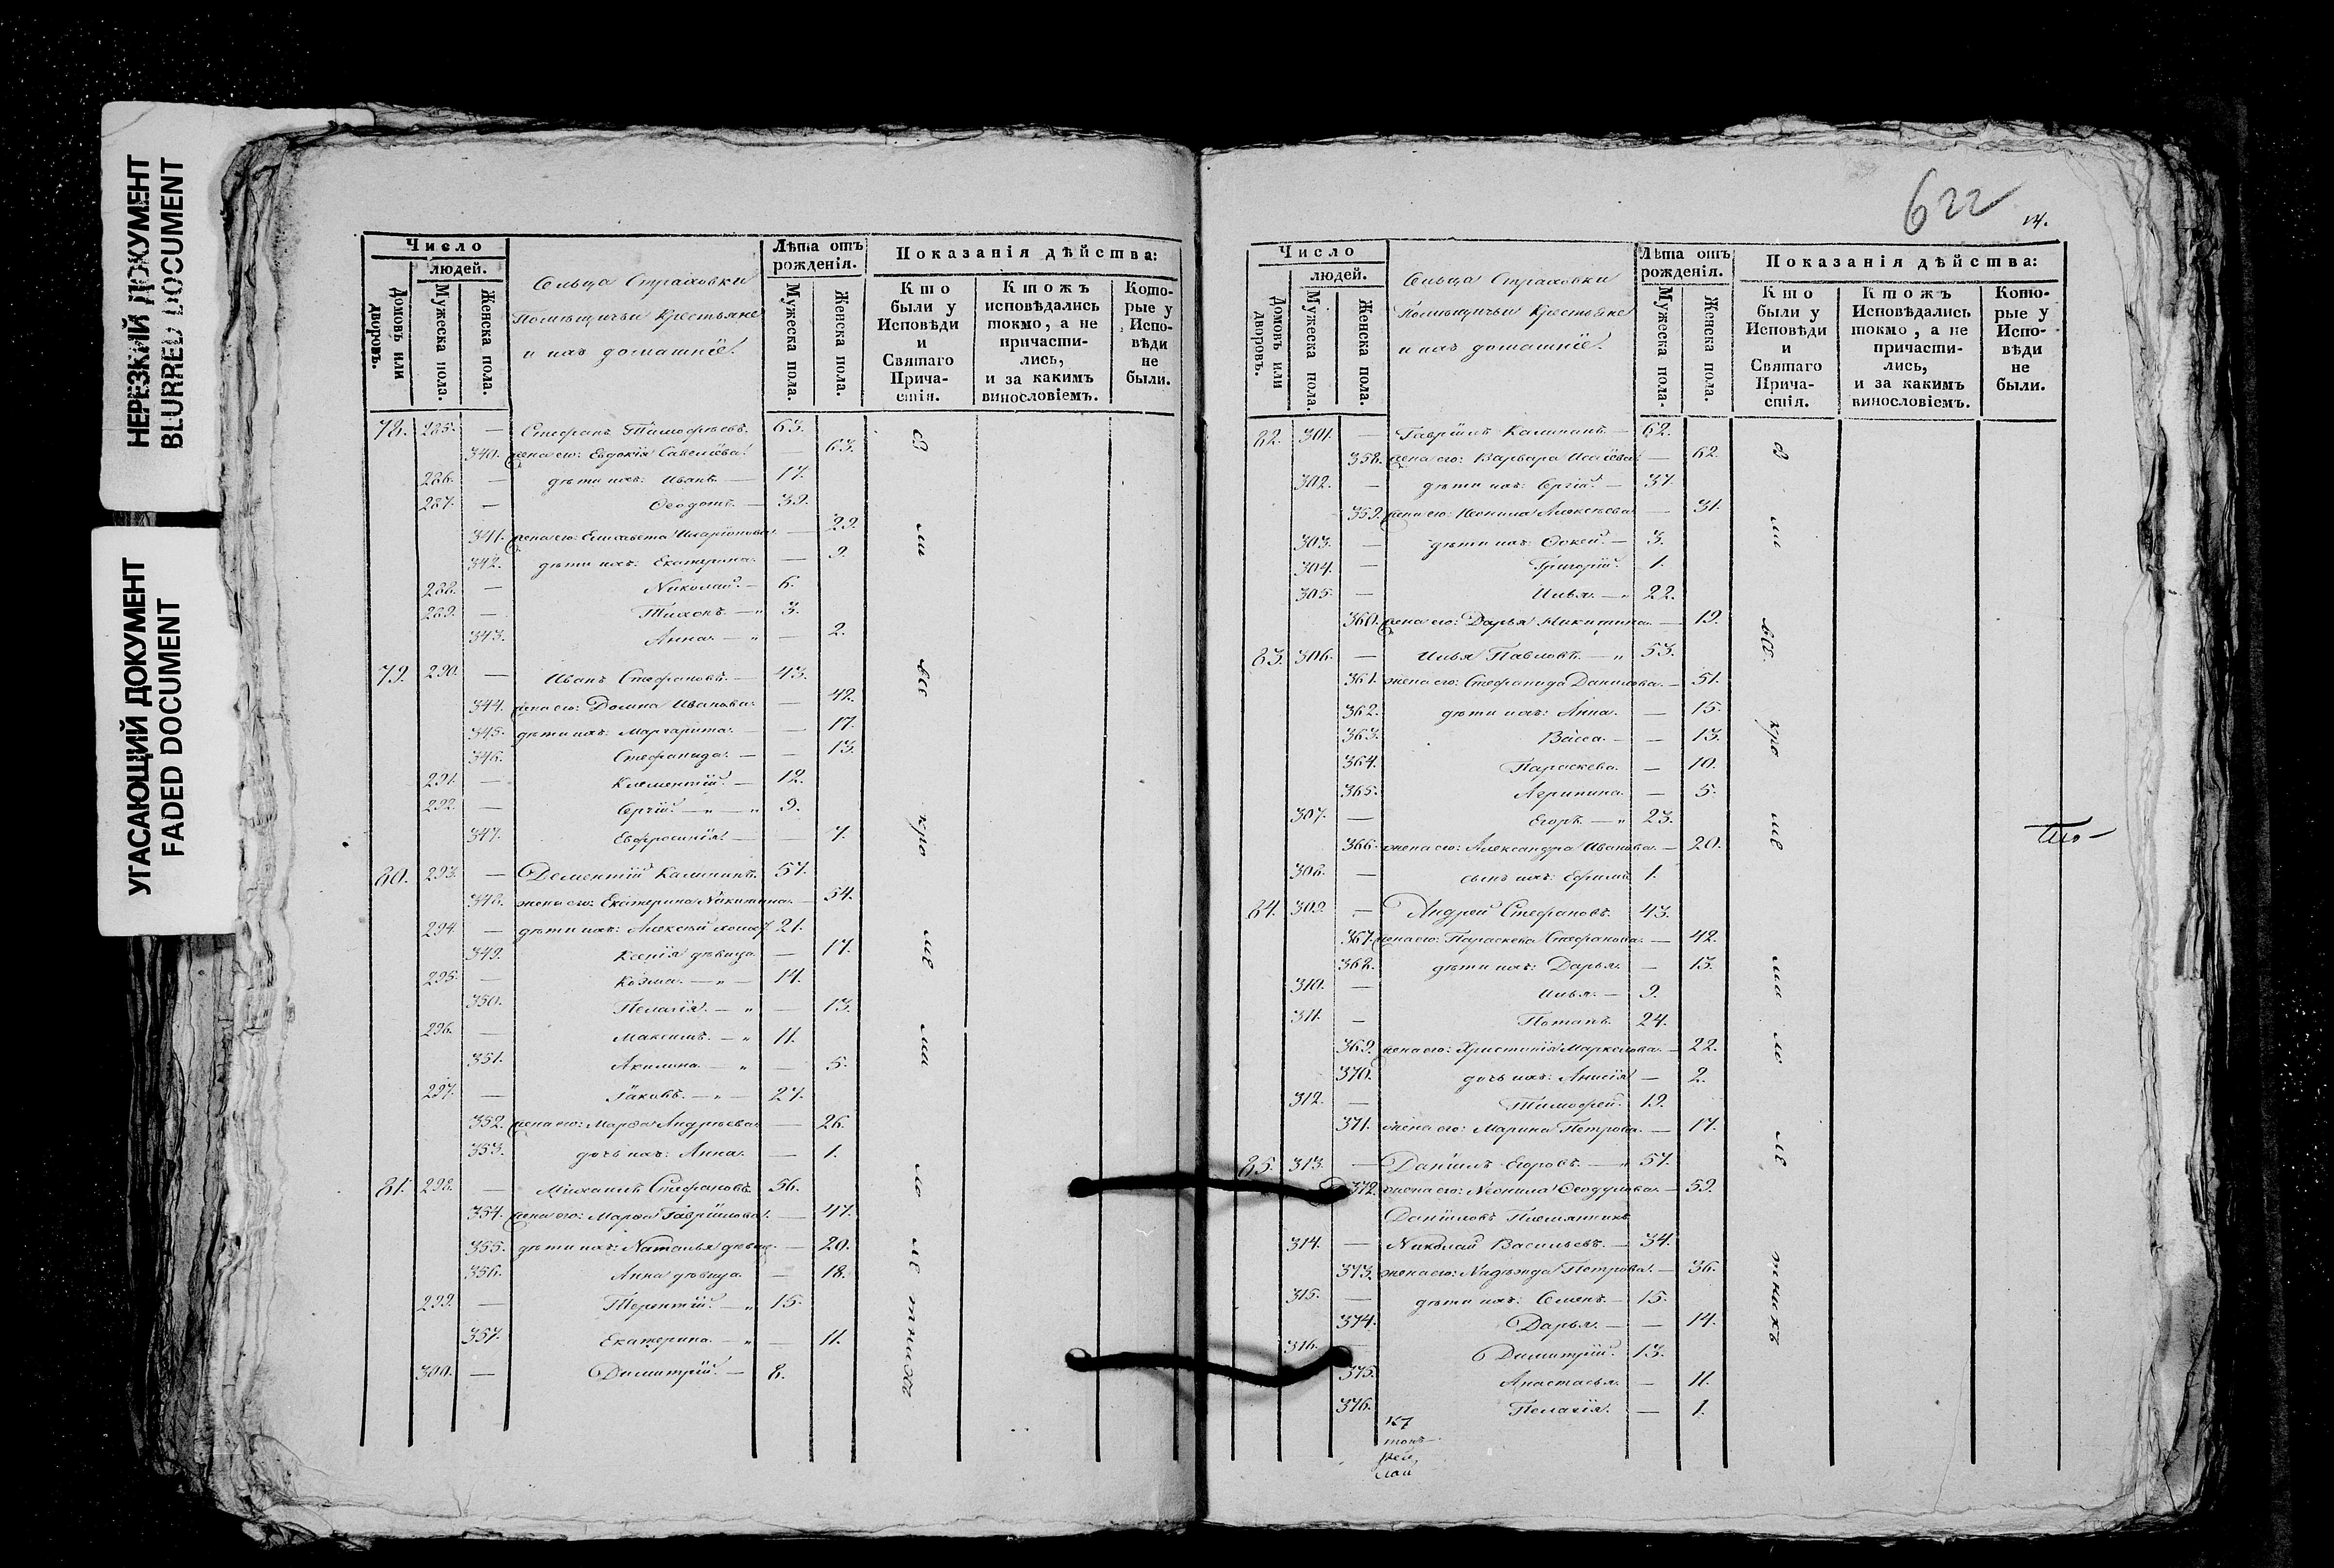 НЕРЕЗКИЙ ДОКУМЕНТ
BLURRED DOCUMENT
УГАСАЮЩИЙ ДОКУМЕНТ
FADED DOCUMENT
Число
людей.
Домовъ или дворовъ.
Мужеска пола.
Женска пола.
Сельца Страховки
Помѣщичьи Крестьяне
и ихъ домашніе.
Лѣта отъ рожденія.
Мужеска пола.
Женска пола.
Показанія дѣйства:
Кто были у Исповѣди и Святаго Причастія.
Ктожъ исповѣдались токмо, а не причастились, и за какимъ винословіемъ.
Которые у Исповѣди не были.
78. 285. — Стефанъ Тимофѣевъ. 63.
340. жена его: Евдокія Савелїева. — 63.
286. — дѣти ихъ: Иванъ. — 17.
287. — Ѳеодотъ. — 39.
341. жена его: Елисавета Иларіонова. — 29.
342. дѣти ихъ: Екатерина. — 9.
288. — Николай. — 6.
289. — Тихонъ. — 3.
343. Анна. — 2.
79. 290. — Иванъ Стефановъ. — 43.
344. жена его: Домна Иванова. — 42.
345. дѣти ихъ: Маргарита. — 17.
346. Стефанида. — 13.
291. — Клементїй. — 12.
292. — Сергїй. — 9.
347. Евфросинїя. — 7.
80. 293. — Дементїй Калининъ. 57.
348. жена его: Екатерина Никитина. — 54.
294 — дѣти ихъ: Алексѣй 21.
349. Ксенїя дѣвица. — 17.
295. — Козма. — 14.
350. Пелагїя. — 13.
296. — Максимъ. — 11.
351. Акилина. — 5.
297. — Їаковъ. — 27.
352. жена его: Марѳа Андрѣева. — 26.
353. дочь ихъ: Анна. — 1.
81. 298. — Михаилъ Стефановъ. 56.
354. жена его: Марѳа Гаврїилова. — 47.
355. дѣти ихъ: Наталья дѣвица. — 20.
356. Анна дѣвица. — 18.
299. — Терентїй. — 15.
357. Екатерина. — 11.
300. — Димитрїй. — 8.
622
14.
Число
людей.
Домовъ или дворовъ.
Мужеска пола.
Женска пола.
Сельца Страховки
Помѣщичьи Крестьяне
и ихъ домашніе.
Лѣта отъ рожденія.
Мужеска пола.
Женска пола.
Показанія дѣйства:
Кто были у Исповѣди и Святаго Причастія.
Ктожъ Исповѣдались токмо, а не причастились, и за какимъ винословіемъ.
Которые у Исповѣди не были.
82. 301. — Гаврїилъ Калининъ. — 62.
358. жена его: Варвара Исаїева. — 62.
302. — дѣти ихъ: Сергїй. — 37.
359. жена его: Неонила Алексѣева — 31.
303. — дѣти ихъ: Ѳокей. — 3.
304. — Григорїй. 1.
305. — Илья. — 22.
360. жена его: Дарья Никитина. — 19.
83. 306. — Илья Павловъ. — 53.
361. жена его: Стефанида Данилова. — 51.
362. дѣти ихъ: Анна. — 15.
363. Васса. — 13.
364. Параскева. — 10.
365. Агрипина. — 5.
307. — Егоръ. — 23.
366. жена его: Александра Иванова. — 20.
308. — сынъ ихъ: Ефимъ 1.
84. 309. — Андрей Стефановъ. 43.
367. жена его: Параскева Стефанова. — 42.
368. дѣти ихъ: Дарья. — 13.
310. — Илья. — 9.
311. — Потапъ. 24.
369. жена его: Христинїя Маркелова. — 22.
370. дочь ихъ: Анисїя — 2.
312. — Тимофей. 19.
371. жена его: Марина Петрова. — 17.
85. 313. — Данїилъ Егоровъ. — 57.
372. жена его: Неонила Ѳеодулова. — 59.
Данїиловъ Племянникъ
314. — Николай Васильевъ. — 34.
373. жена его: Надежда Петрова. — 36.
315. — дѣти ихъ: Семенъ. — 15.
374. Дарья. — 14.
316. — Димитрїй. 13.
375. Анастасья. — 11.
376. Пелагїя. — 1.